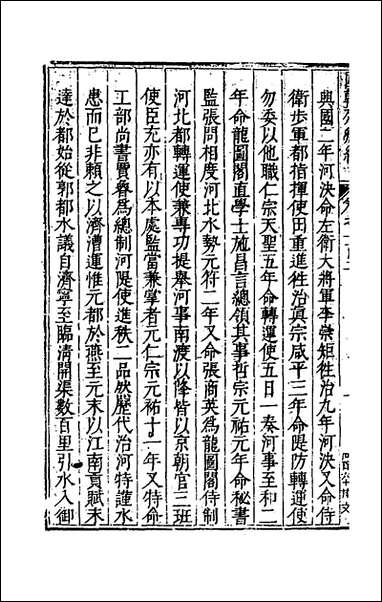 興國二年河決命左衛大將軍李崇矩往治九年河決又命侍
衛步軍都指揮使田重進往治真宗咸平三年命隄防轉運使
勿委以他職仁宗天聖五年命轉運使五日一奏河事至和二
年命龍圖閣直學士施昌言總領其事哲宗元祐元年命秘書
監張問相度河北水勢元符二年又命張商英為龍圖閣待制
河北都轉運使兼專功提舉河事南渡以降皆以京朝官三班
使臣充亦有以本處監當兼掌者元仁宗元祐十一年又特命
工部尚書賈魯為總制河隄使進秩二品然歷代治河特謹水
患而已非賴之以濟漕運惟元都於燕至元末以江南貢賦末
達於都始從郭都水議自濟寧至臨清開渠數百里引水入御